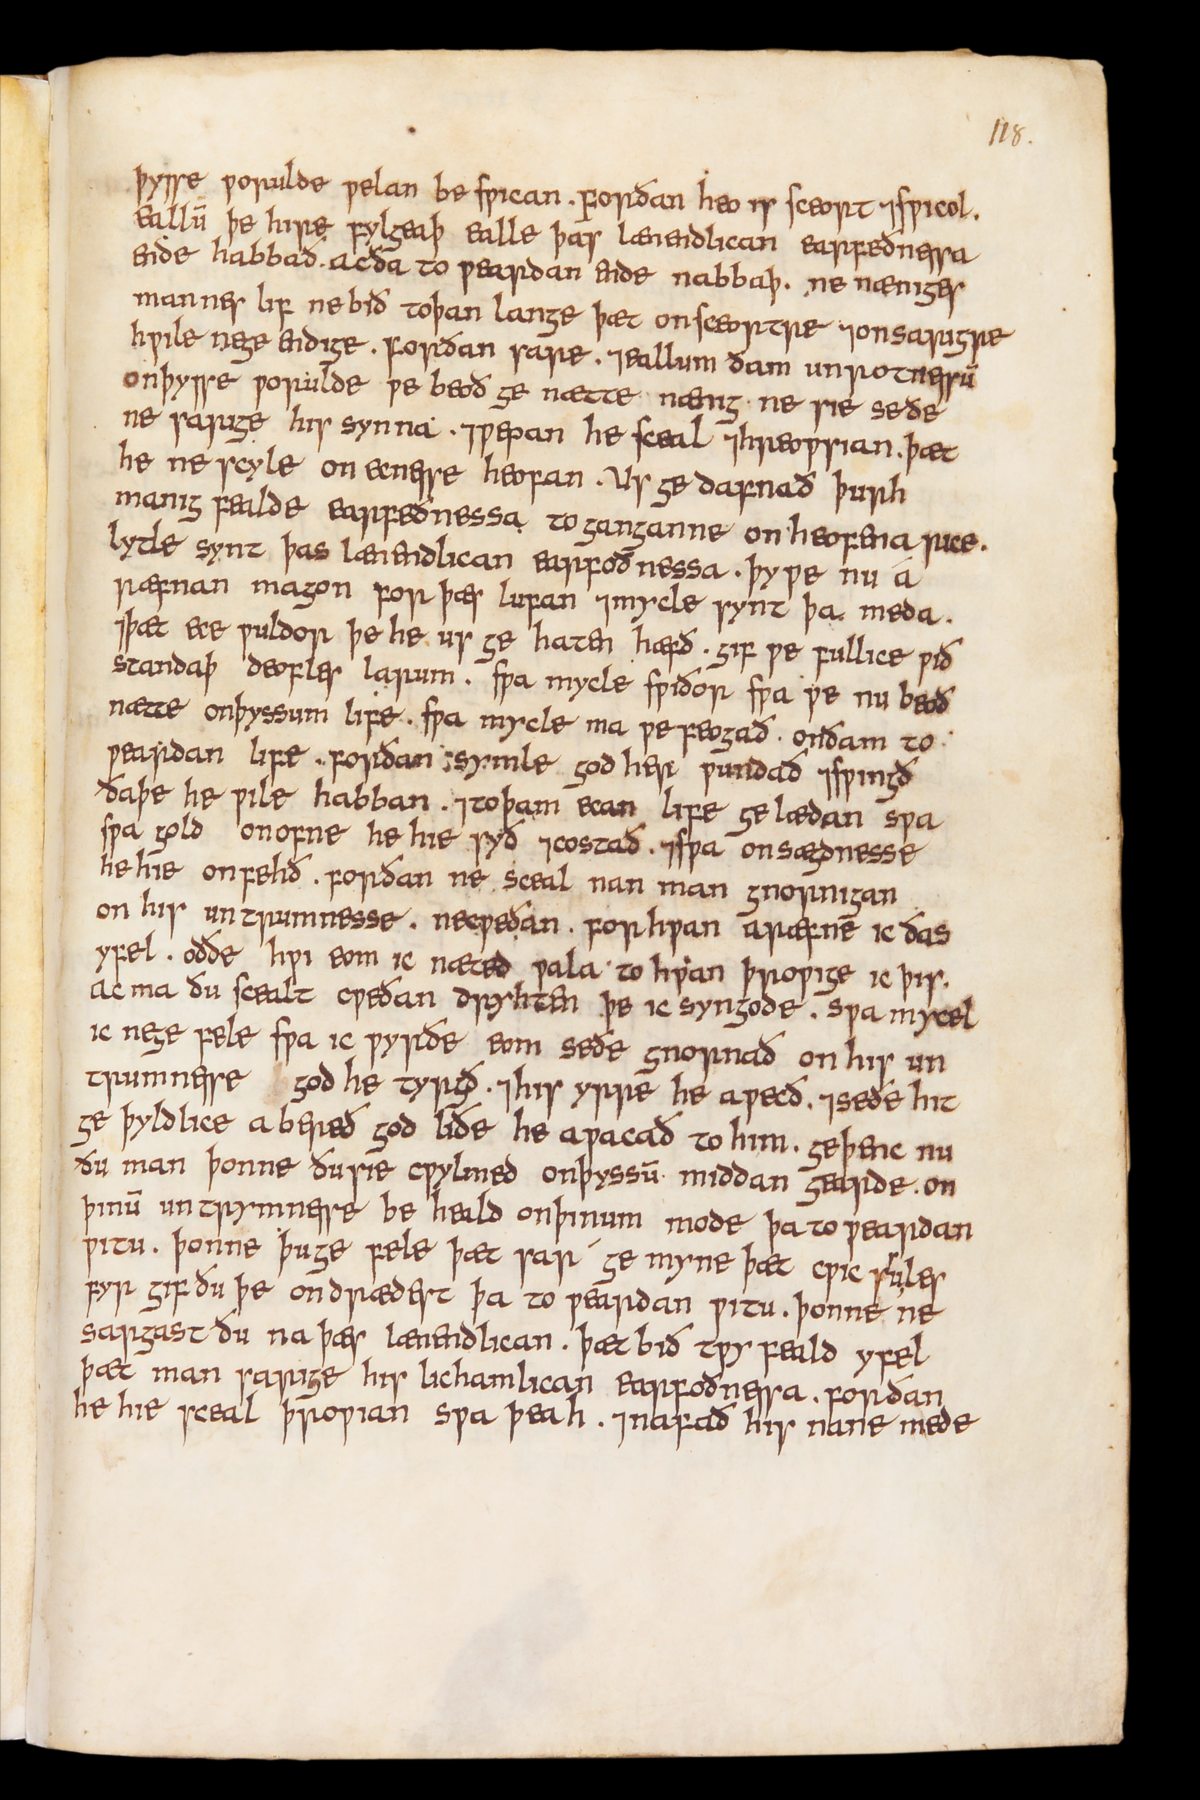 118.
þysse ƿorulde ƿelan beswican . forðan heo is sceort ⁊sƿicol .
eallū þe hire fylgeaþ ealle þas lænendlican earfeðnessa
ende habbað . acða to ƿeardan ende nabbaþ . ne næniges
mannes lif ne bið toþan lange þæt onsceortre ⁊onsarigre
hƿile nege endige . forðan sare . ⁊eallum ðam unrotnessū
onþysse ƿorulde ƿe beoð ge nætte nænig ne sie seðe
ne sarige his synna . ⁊ƿepan he sceal ⁊hreoƿsian . þæt
he ne scyle on ecnesse heofan . Us ge dafnað þurh
manig fealde earfeðnessa to ganganne on heofena rice .
lytle synt þas lænendlican earfoðnessa . þy ƿe nu a
ræfnan magon for þæs lufan ⁊mycle synt þa meda .
⁊þæt ece ƿuldor þe he us ge haten hæfð . gif ƿe fullice ƿið
standaþ deofles larum . sƿa mycle sƿiðor sƿa ƿe nu beoð
nætte onþyssum life . sƿa mycle ma ƿe feogað . onðam to
ƿeardan life . forðan symle god her ƿundað ⁊sƿingð
ðaþe he ƿile habban . ⁊toþam ecan life ge lædan sƿa
sƿa gold onofne he hie syð ⁊costað . ⁊sƿa onsægdnesse
he hie onfehð . forðan ne sceal nan man gnornigan
on his untrumnesse . necƿeðan . forhƿan aræfnē ic ðas
yfel . oððe hƿi eom ic næted ƿala to hƿan þroƿige ic þis .
ac ma ðu scealt cƿeðan dryhten þe ic syngode . sƿa mycel
ic nege fele sƿa ic ƿyrðe eom seðe gnornað on his un
trumnesse god he tyrgð . ⁊his yrre he aƿecð . ⁊seðe hit
ge þyldlice abereð god liðe he aƿacað to him . geþenc nu
ðu man þonne ðu sie cƿylmed onþyssū middan gearde . on
þinū untrymnesse be heald onþinum mode þa to ƿeardan
ƿitu . þonne þu ge fele þæt sar ge myne þæt cƿic sules
fyr gif ðu þe ondrædest þa to ƿeardan ƿitu . þonne ne
sargast ðu na þæs lænendlican . þæt bið tƿy feald yfel
þæt man sarige his lichamlican earfoðnessa . forðan
he hie sceal þroƿian sƿa þeah . ⁊nafað his nane mede